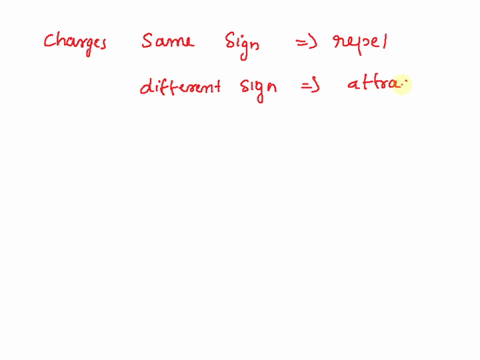 Charges Same Sign => repel
different sign => attra